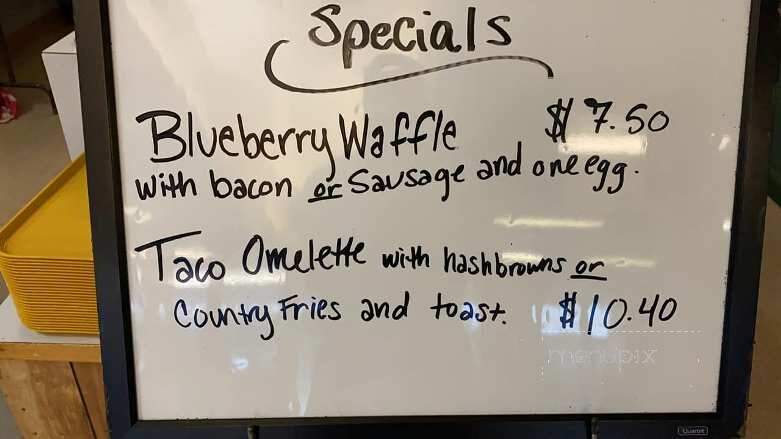 Specials
Blueberry Waffle $7.50
with bacon or Sausage and one egg.
Taco Omelette with hashbrowns or
Country Fries and toast. $10.40
menupix
Quartet